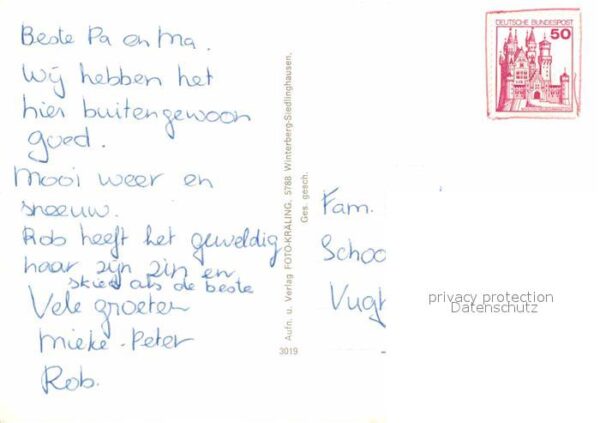 Beste Pa en Ma.
Wij hebben het
hier buitengewoon
goed.
Mooi weer en
sneeuw.
Rob heeft het geweldig
naar zijn zin en
skied als de beste
Vele groeten
Mieke - Peter
Rob.
Aufn. u. Verlag FOTO-KRÄLING, 5788 Winterberg-Siedlinghausen,
Ges. gesch.
3019
DEUTSCHE BUNDESPOST
50
Fam.
Schoo
Vught
privacy protection
Datenschutz